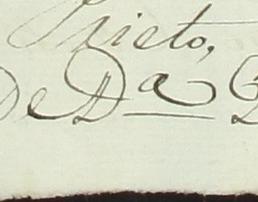 Prieto,
De Dª